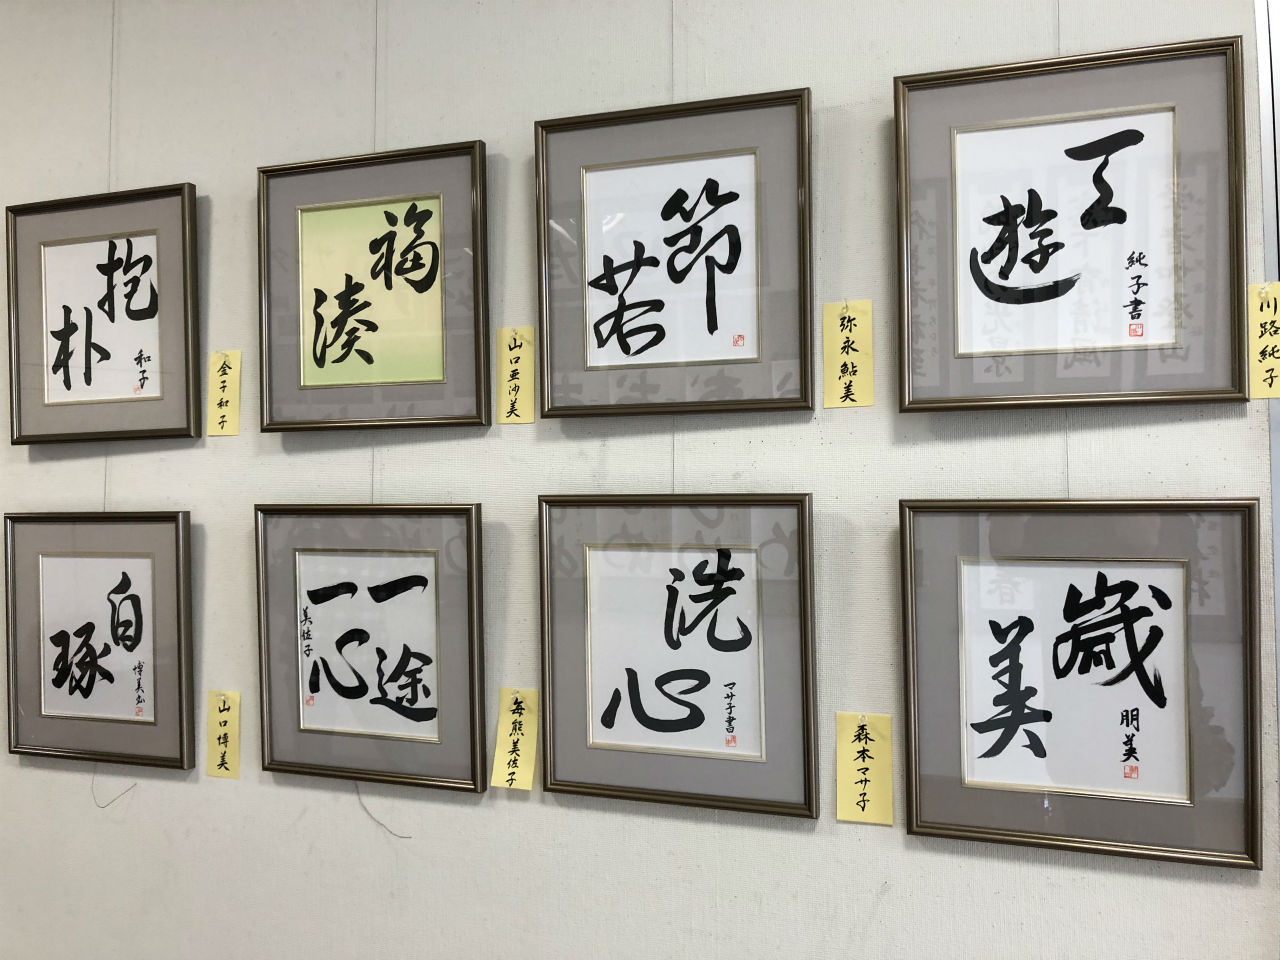 抱
朴
和子
金子和子
福
湊
山口亜沙美
節
若
弥永鮎美
天
遊
純子書
川路純子
自
琢
博美書
山口博美
一途
一心
美佐子
毎熊美佐子
洗
心
マサ子書
森本マサ子
歳
美
明美